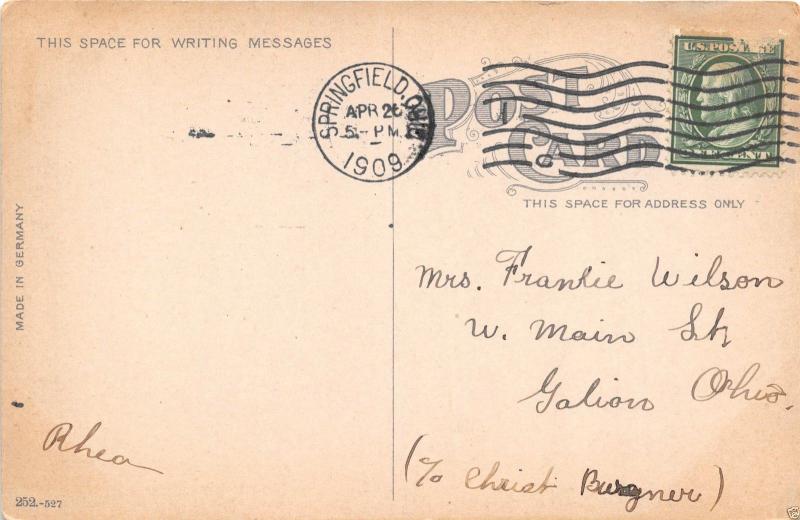 THIS SPACE FOR WRITING MESSAGES
SPRINGFIELD, OHIO
APR 26
5 - PM
1909
POST CARD
U.S. POSTAGE
THIS SPACE FOR ADDRESS ONLY
MADE IN GERMANY
Mrs. Frankie Wilson
W. Main St.
Galion Ohio.
(℅ Christ Burgner)
Rhea
252.-527